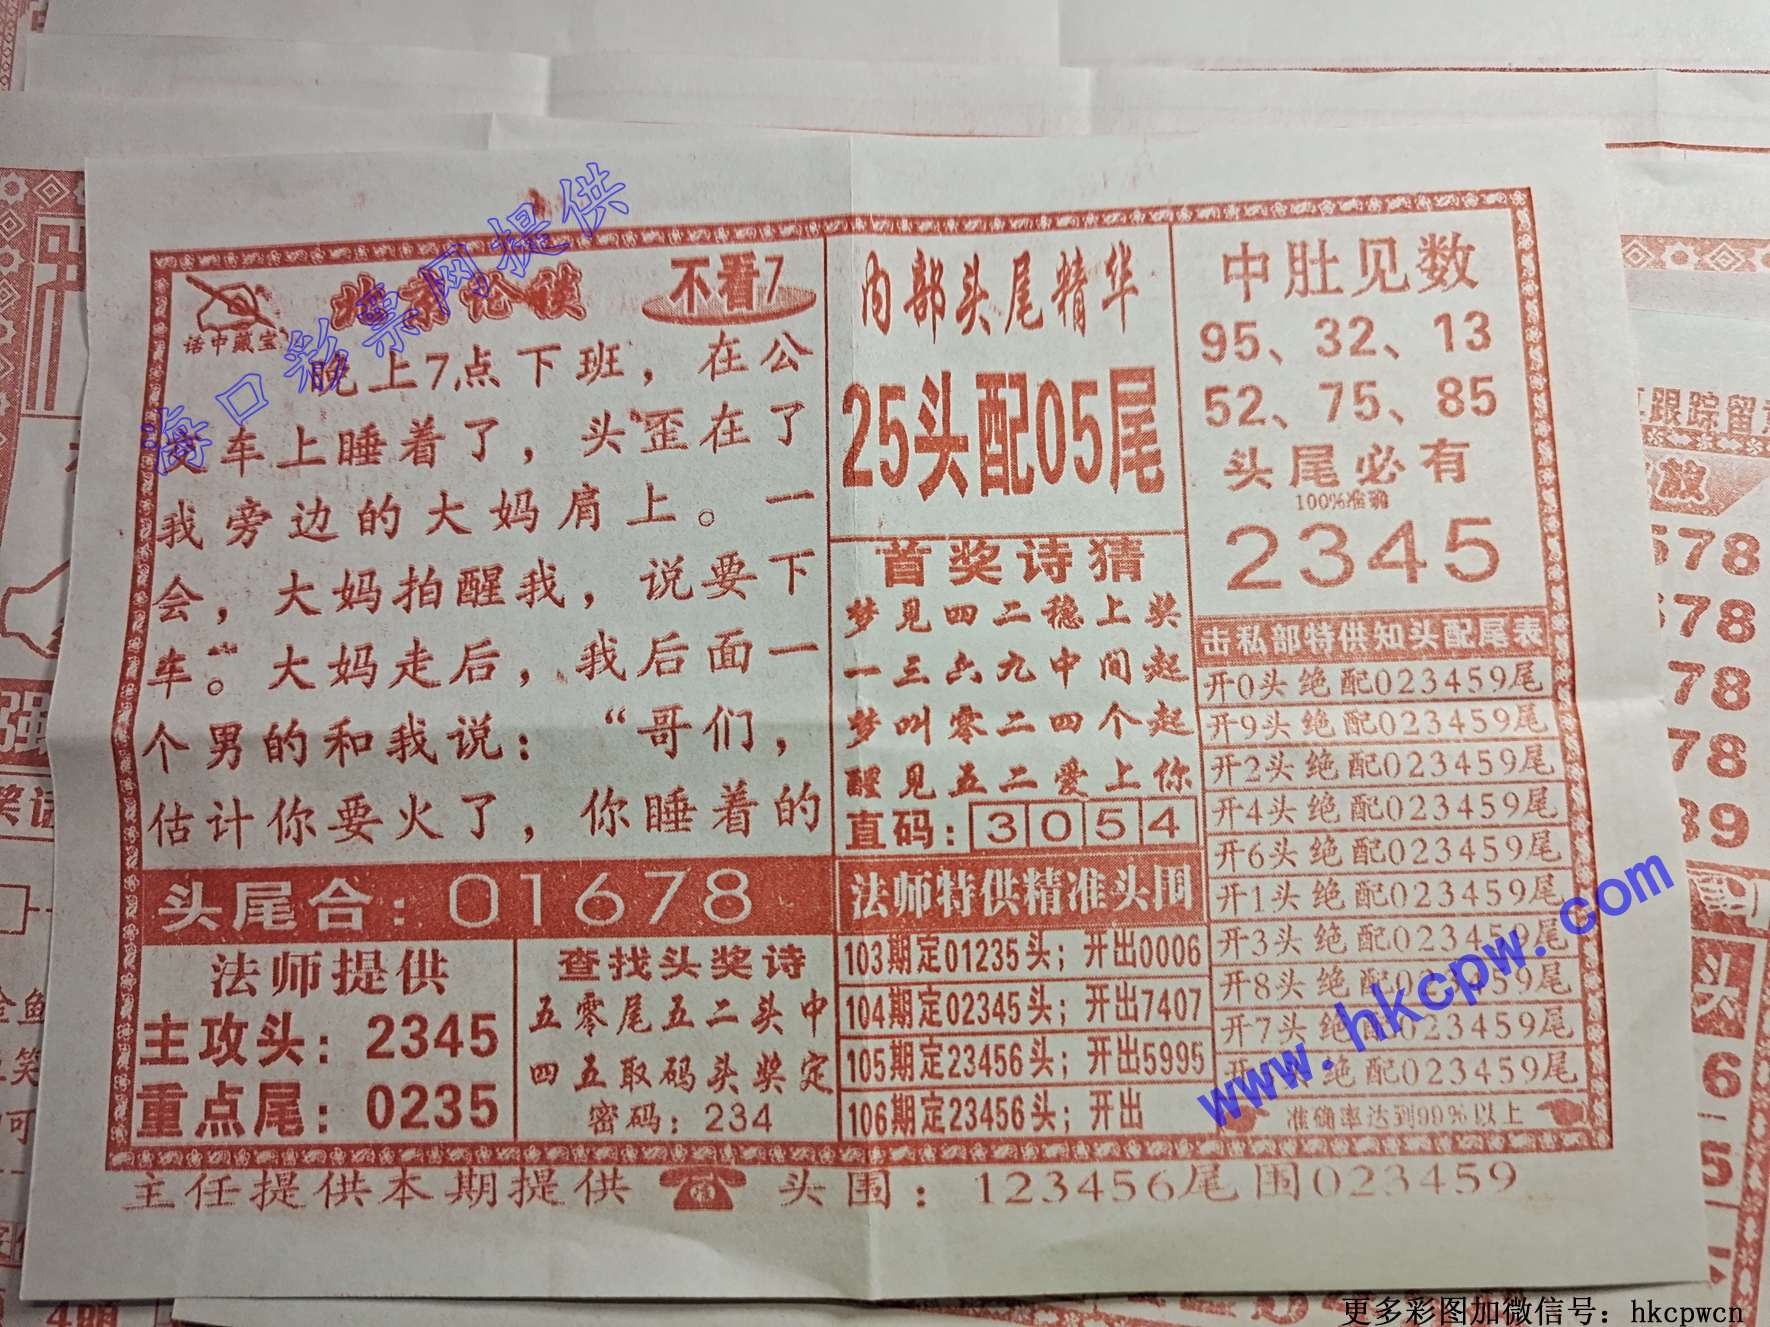 海口彩票网提供
话中藏宝
不看7
晚上7点下班，在公
交车上睡着了，头歪在了
我旁边的大妈肩上。一
会，大妈拍醒我，说要下
车。大妈走后，我后面一
个男的和我说：“哥们，
估计你要火了，你睡着的
头尾合：01678
法师提供
主攻头：2345
重点尾：0235
查找头奖诗
五零尾五二头中
四五取码头奖定
密码：234
内部头尾精华
25头配05尾
首奖诗猜
梦见四二稳上奖
一三六九中间起
梦叫零二四个起
醒见五二爱上你
直码：3054
法师特供精准头围
103期定01235头；开出0006
104期定02345头；开出7407
105期定23456头；开出5995
106期定23456头；开出
中肚见数
95、32、13
52、75、85
头尾必有
100%准确
2345
击私部特供知头配尾表
开0头绝配023459尾
开9头绝配023459尾
开2头绝配023459尾
开4头绝配023459尾
开6头绝配023459尾
开1头绝配023459尾
开3头绝配023459尾
开8头绝配023459尾
开7头绝配023459尾
绝配023459尾
准确率达到99%以上
主任提供本期提供 头围：123456尾围023459
www.hkcpw.com
跟踪留
578
678
78
78
39
6
5
更多彩图加微信号：hkcpwcn